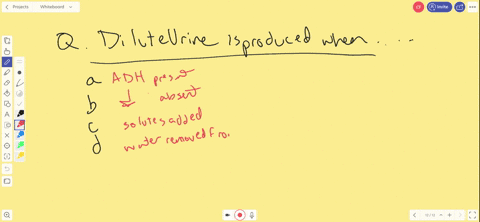 Projects Whiteboard Invite
Q. Dilute Urine is produced when ....
a ADH present
b ↓ absent
c solutes added
d water removed fro.